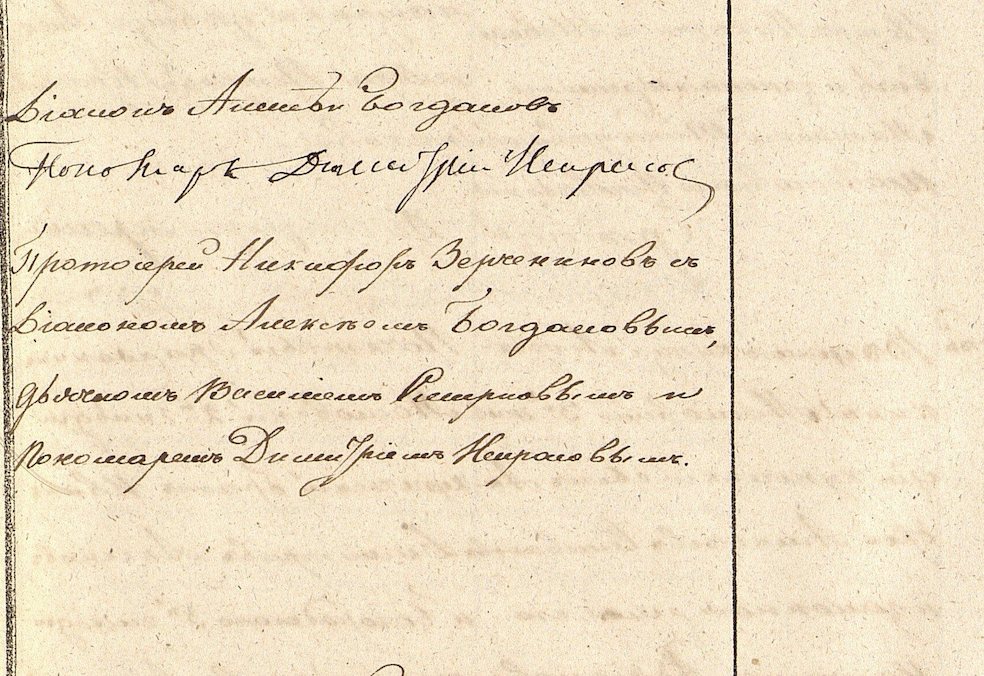 Діаконъ Алексѣи Богдановъ
Пономарь Димитрій Некрасов
Протоіерей Никифоръ Зерчениновъ съ
Діакономъ Алексѣемъ Богдановымъ,
дьячкомъ Василіемъ Смирновымъ и
Пономаремъ Димитріемъ Некрасовымъ.